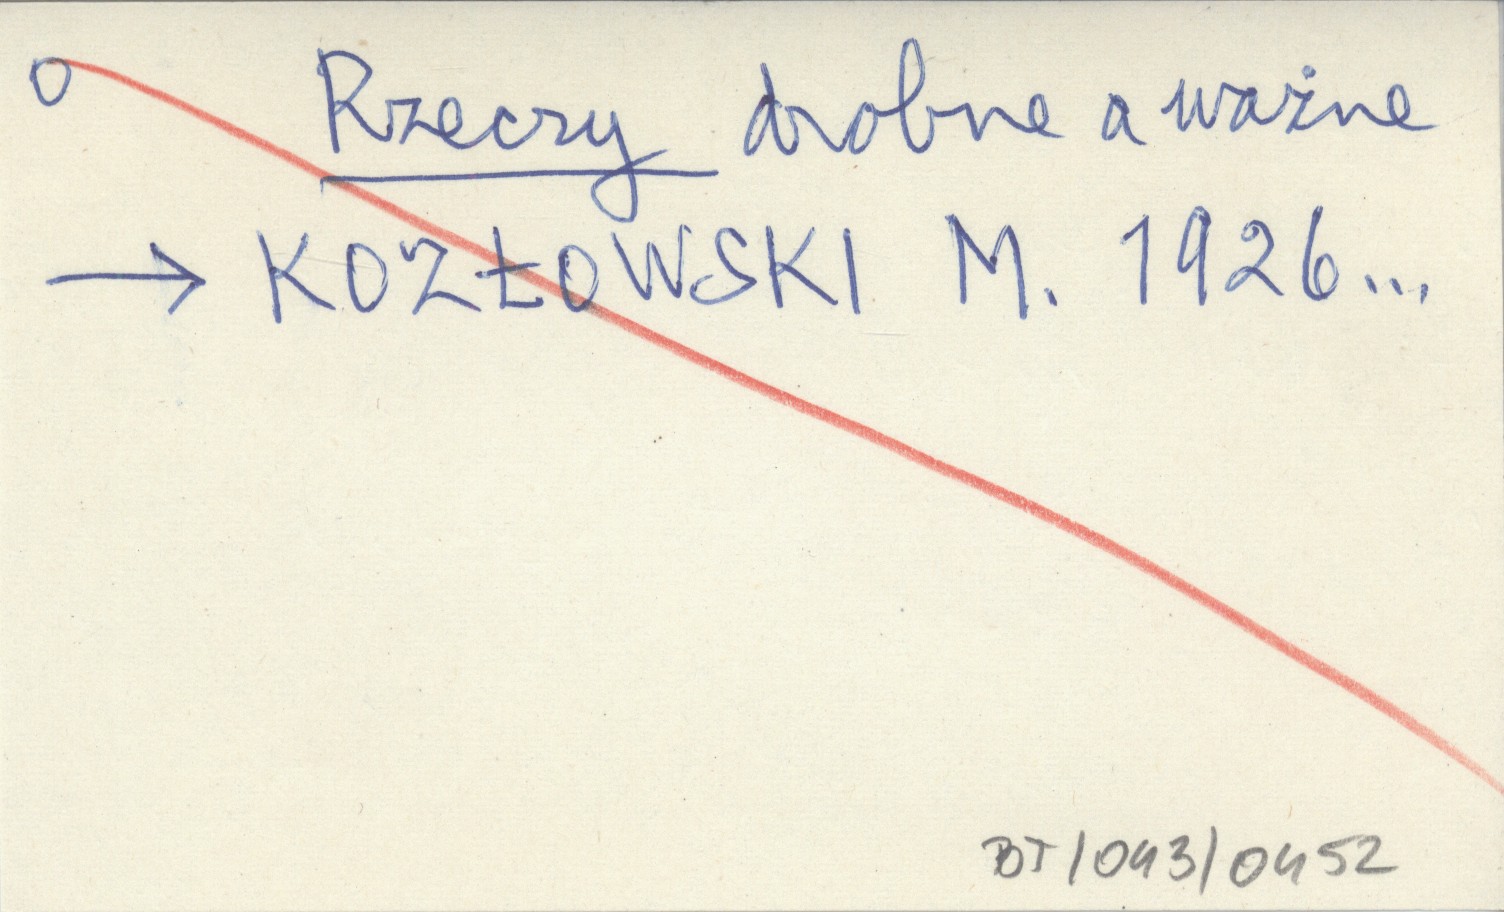 O Rzeczy drobne a ważne
→ KOZŁOWSKI M. 1926...
BT/043/0452